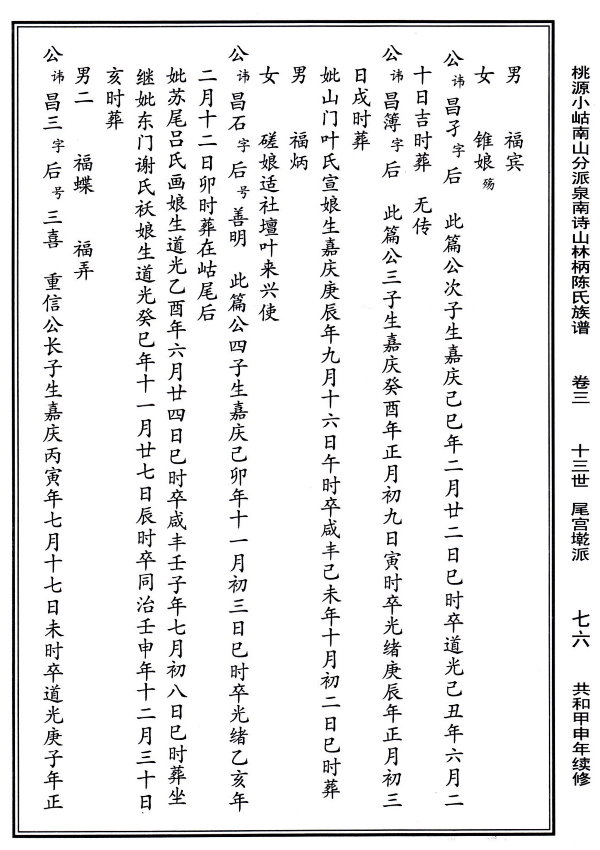 桃源小岵南山分派泉南诗山林柄陈氏族谱 卷三 十三世 尾宫墘派 七六 共和甲申年续修
男 福宾
女 锥娘 殇
公讳昌孖字后 此篇公次子生嘉庆己巳年二月廿二日巳时卒道光己丑年六月二
十日吉时葬 无传
公讳昌簿字后 此篇公三子生嘉庆癸酉年正月初九日寅时卒光绪庚辰年正月初三
日戌时葬
妣山门叶氏宣娘生嘉庆庚辰年九月十六日午时卒咸丰己未年十月初二日巳时葬
男 福炳
女 磋娘适社壇叶来兴使
公讳昌石字后号善明 此篇公四子生嘉庆己卯年十一月初三日巳时卒光绪乙亥年
二月十二日卯时葬在岵尾后
妣苏尾吕氏画娘生道光乙酉年六月廿四日巳时卒咸丰壬子年七月初八日巳时葬坐
继妣东门谢氏袄娘生道光癸巳年十一月廿七日辰时卒同治壬申年十二月三十日
亥时葬
男二 福蝶 福弄
公讳昌三字后号三喜 重信公长子生嘉庆丙寅年七月十七日未时卒道光庚子年正